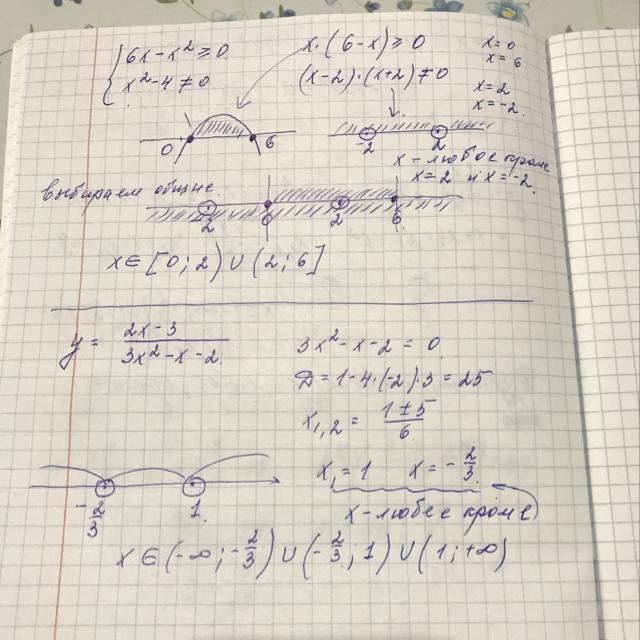 { 6x - x² ≥ 0
x² - 4 ≠ 0
x·(6-x) ≥ 0
(x-2)·(x+2) ≠ 0
x=0
x=6
x=2
x=-2.
0 6
-2 2
x - любое кроме
x=2 и x=-2.
выбираем общие
2 0 2 6
x ∈ [0; 2) ∪ (2; 6]
y = (2x-3)/(3x²-x-2)
3x² - x - 2 = 0
D = 1 - 4·(-2)·3 = 25
x₁,₂ = (1±5)/6
x₁ = 1 x = -2/3
x - любое кроме
-2/3 1
x ∈ (-∞; -2/3) ∪ (-2/3; 1) ∪ (1; +∞)